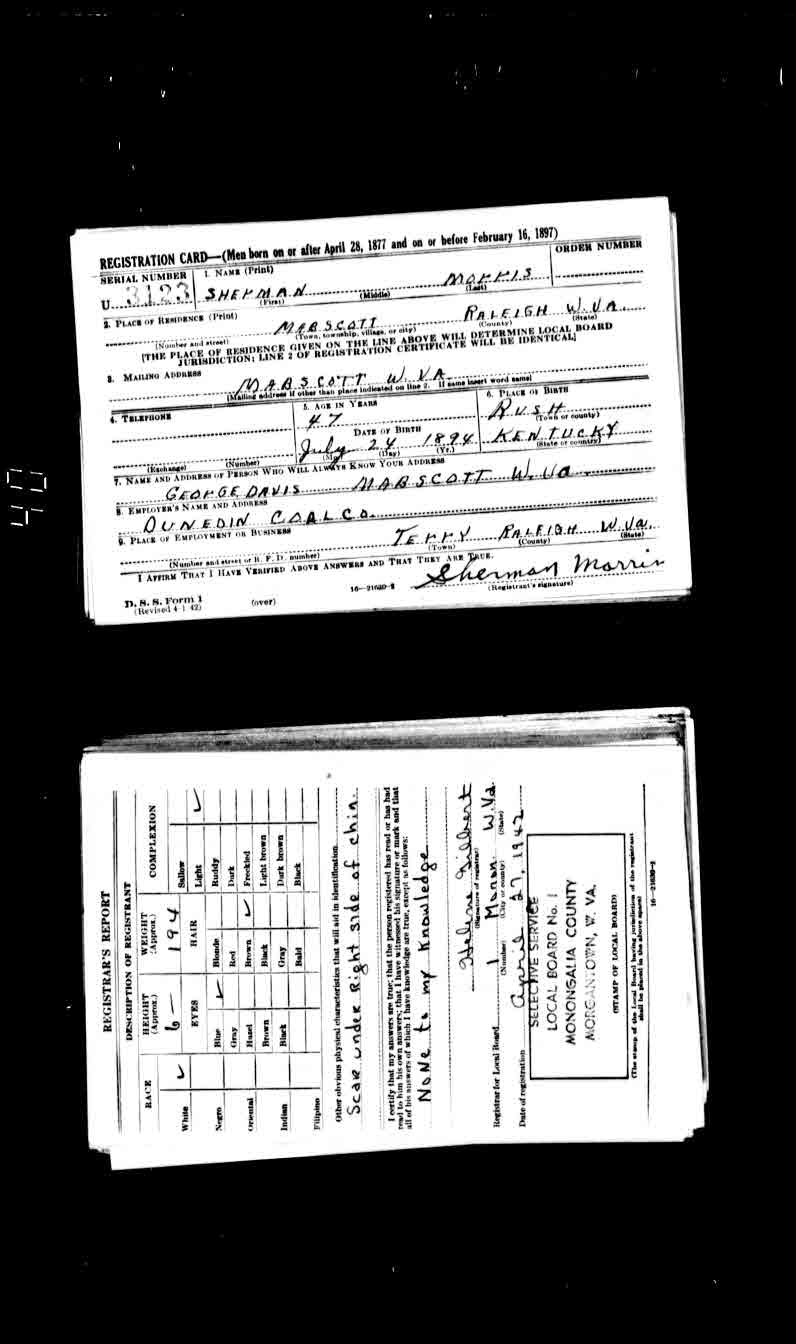 REGISTRATION CARD—(Men born on or after April 28, 1877 and on or before February 16, 1897)
SERIAL NUMBER 1. NAME (Print) ORDER NUMBER
U 3123 SHERMAN MORRIS
(First) (Middle) (Last)
2. PLACE OF RESIDENCE (Print)
MABSCOTT RALEIGH W.VA.
(Number and street) (Town, township, village, or city) (County) (State)
[THE PLACE OF RESIDENCE GIVEN ON THE LINE ABOVE WILL DETERMINE LOCAL BOARD
JURISDICTION; LINE 2 OF REGISTRATION CERTIFICATE WILL BE IDENTICAL]
3. MAILING ADDRESS
MABSCOTT W.VA.
(Mailing address if other than place indicated on line 2. If same insert word same)
4. TELEPHONE 5. AGE IN YEARS 6. PLACE OF BIRTH
47 RUSH
(Town or county)
DATE OF BIRTH
July 24 1894 KENTUCKY
(Exchange) (Number) (Mo.) (Day) (Yr.) (State or country)
7. NAME AND ADDRESS OF PERSON WHO WILL ALWAYS KNOW YOUR ADDRESS
GEORGE DAVIS MABSCOTT W.Va.
8. EMPLOYER'S NAME AND ADDRESS
DUNEDIN COAL CO.
9. PLACE OF EMPLOYMENT OR BUSINESS
TERRY RALEIGH W.Va.
(Number and street or R. F. D. number) (Town) (County) (State)
I AFFIRM THAT I HAVE VERIFIED ABOVE ANSWERS AND THAT THEY ARE TRUE.
Sherman Morris
D. S. S. Form 1 (over) 16—21630-2 (Registrant's signature)
(Revised 4-1-42)
REGISTRAR'S REPORT
DESCRIPTION OF REGISTRANT
RACE HEIGHT (Approx.) WEIGHT (Approx.) COMPLEXION
White ✓ 6 — 194 Sallow
EYES HAIR Light ✓
Negro Blue ✓ Blonde Ruddy
Gray Red Dark
Oriental Hazel Brown ✓ Freckled
Brown Black Light brown
Indian Black Gray Dark brown
Bald Black
Filipino
Other obvious physical characteristics that will aid in identification
Scar under Right side of chin.
I certify that my answers are true; that the person registered has read or has had
read to him his own answers; that I have witnessed his signature or mark and that
all of his answers of which I have knowledge are true, except as follows:
None to my knowledge
Helene Gilbert
(Signature of registrar)
Registrar for Local Board 1 Monon W.Va.
(Number) (City or county) (State)
Date of registration April 27, 1942
SELECTIVE SERVICE
LOCAL BOARD No. 1
MONONGALIA COUNTY
MORGANTOWN, W. VA.
(STAMP OF LOCAL BOARD)
(The stamp of the Local Board having jurisdiction of the registrant
shall be placed in the above space)
16—21630-2